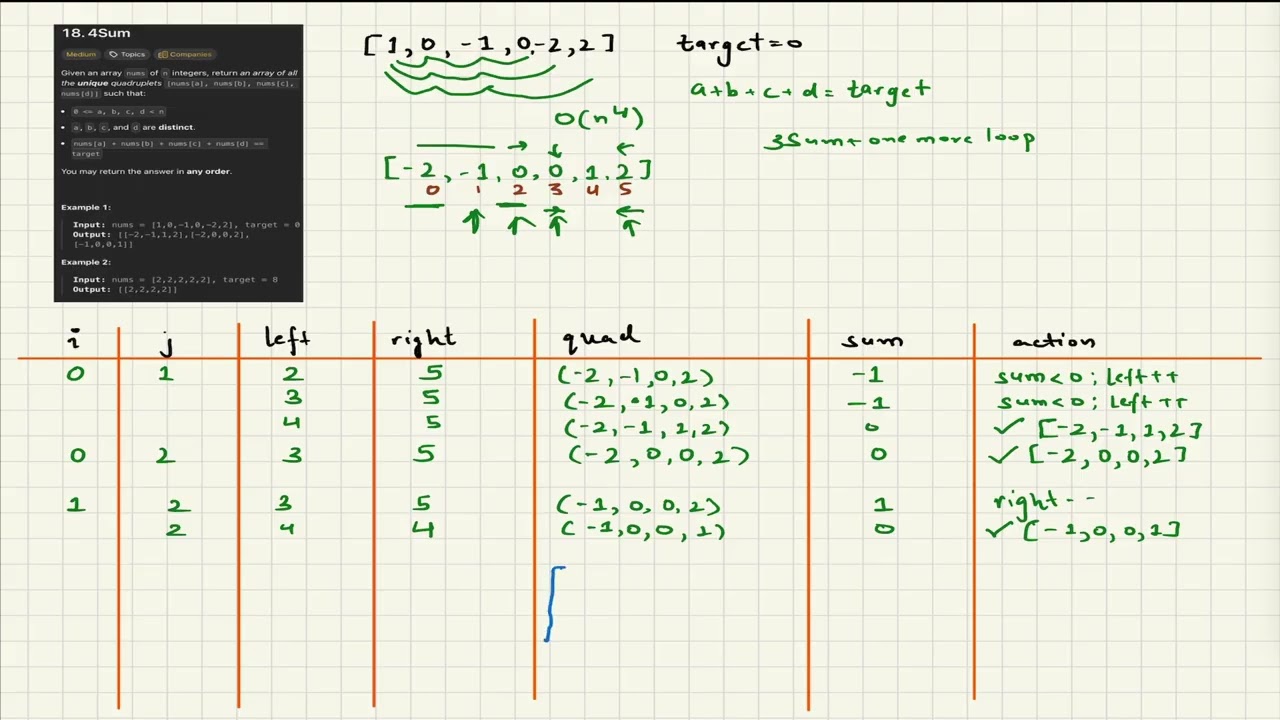 18. 4Sum
Medium Topics Companies
Given an array nums of n integers, return an array of all
the unique quadruplets [nums[a], nums[b], nums[c],
nums[d]] such that:
0 <= a, b, c, d < n
a, b, c, and d are distinct.
nums[a] + nums[b] + nums[c] + nums[d] ==
target
You may return the answer in any order.
Example 1:
Input: nums = [1,0,-1,0,-2,2], target = 0
Output: [[-2,-1,1,2],[-2,0,0,2],
[-1,0,0,1]]
Example 2:
Input: nums = [2,2,2,2,2], target = 8
Output: [[2,2,2,2]]
[1, 0, -1, 0, -2, 2] target = 0
a+b+c+d = target
O(n^4)
3Sum + one more loop
[-2, -1, 0, 0, 1, 2]
0 1 2 3 4 5
i j left right quad sum action
0 1 2 5 (-2, -1, 0, 2) -1 sum<0; left++
3 5 (-2, -1, 0, 2) -1 sum<0; left++
4 5 (-2, -1, 1, 2) 0 ✓ [-2, -1, 1, 2]
0 2 3 5 (-2, 0, 0, 2) 0 ✓ [-2, 0, 0, 2]
1 2 3 5 (-1, 0, 0, 2) 1 right--
2 4 4 (-1, 0, 0, 1) 0 ✓ [-1, 0, 0, 1]
[